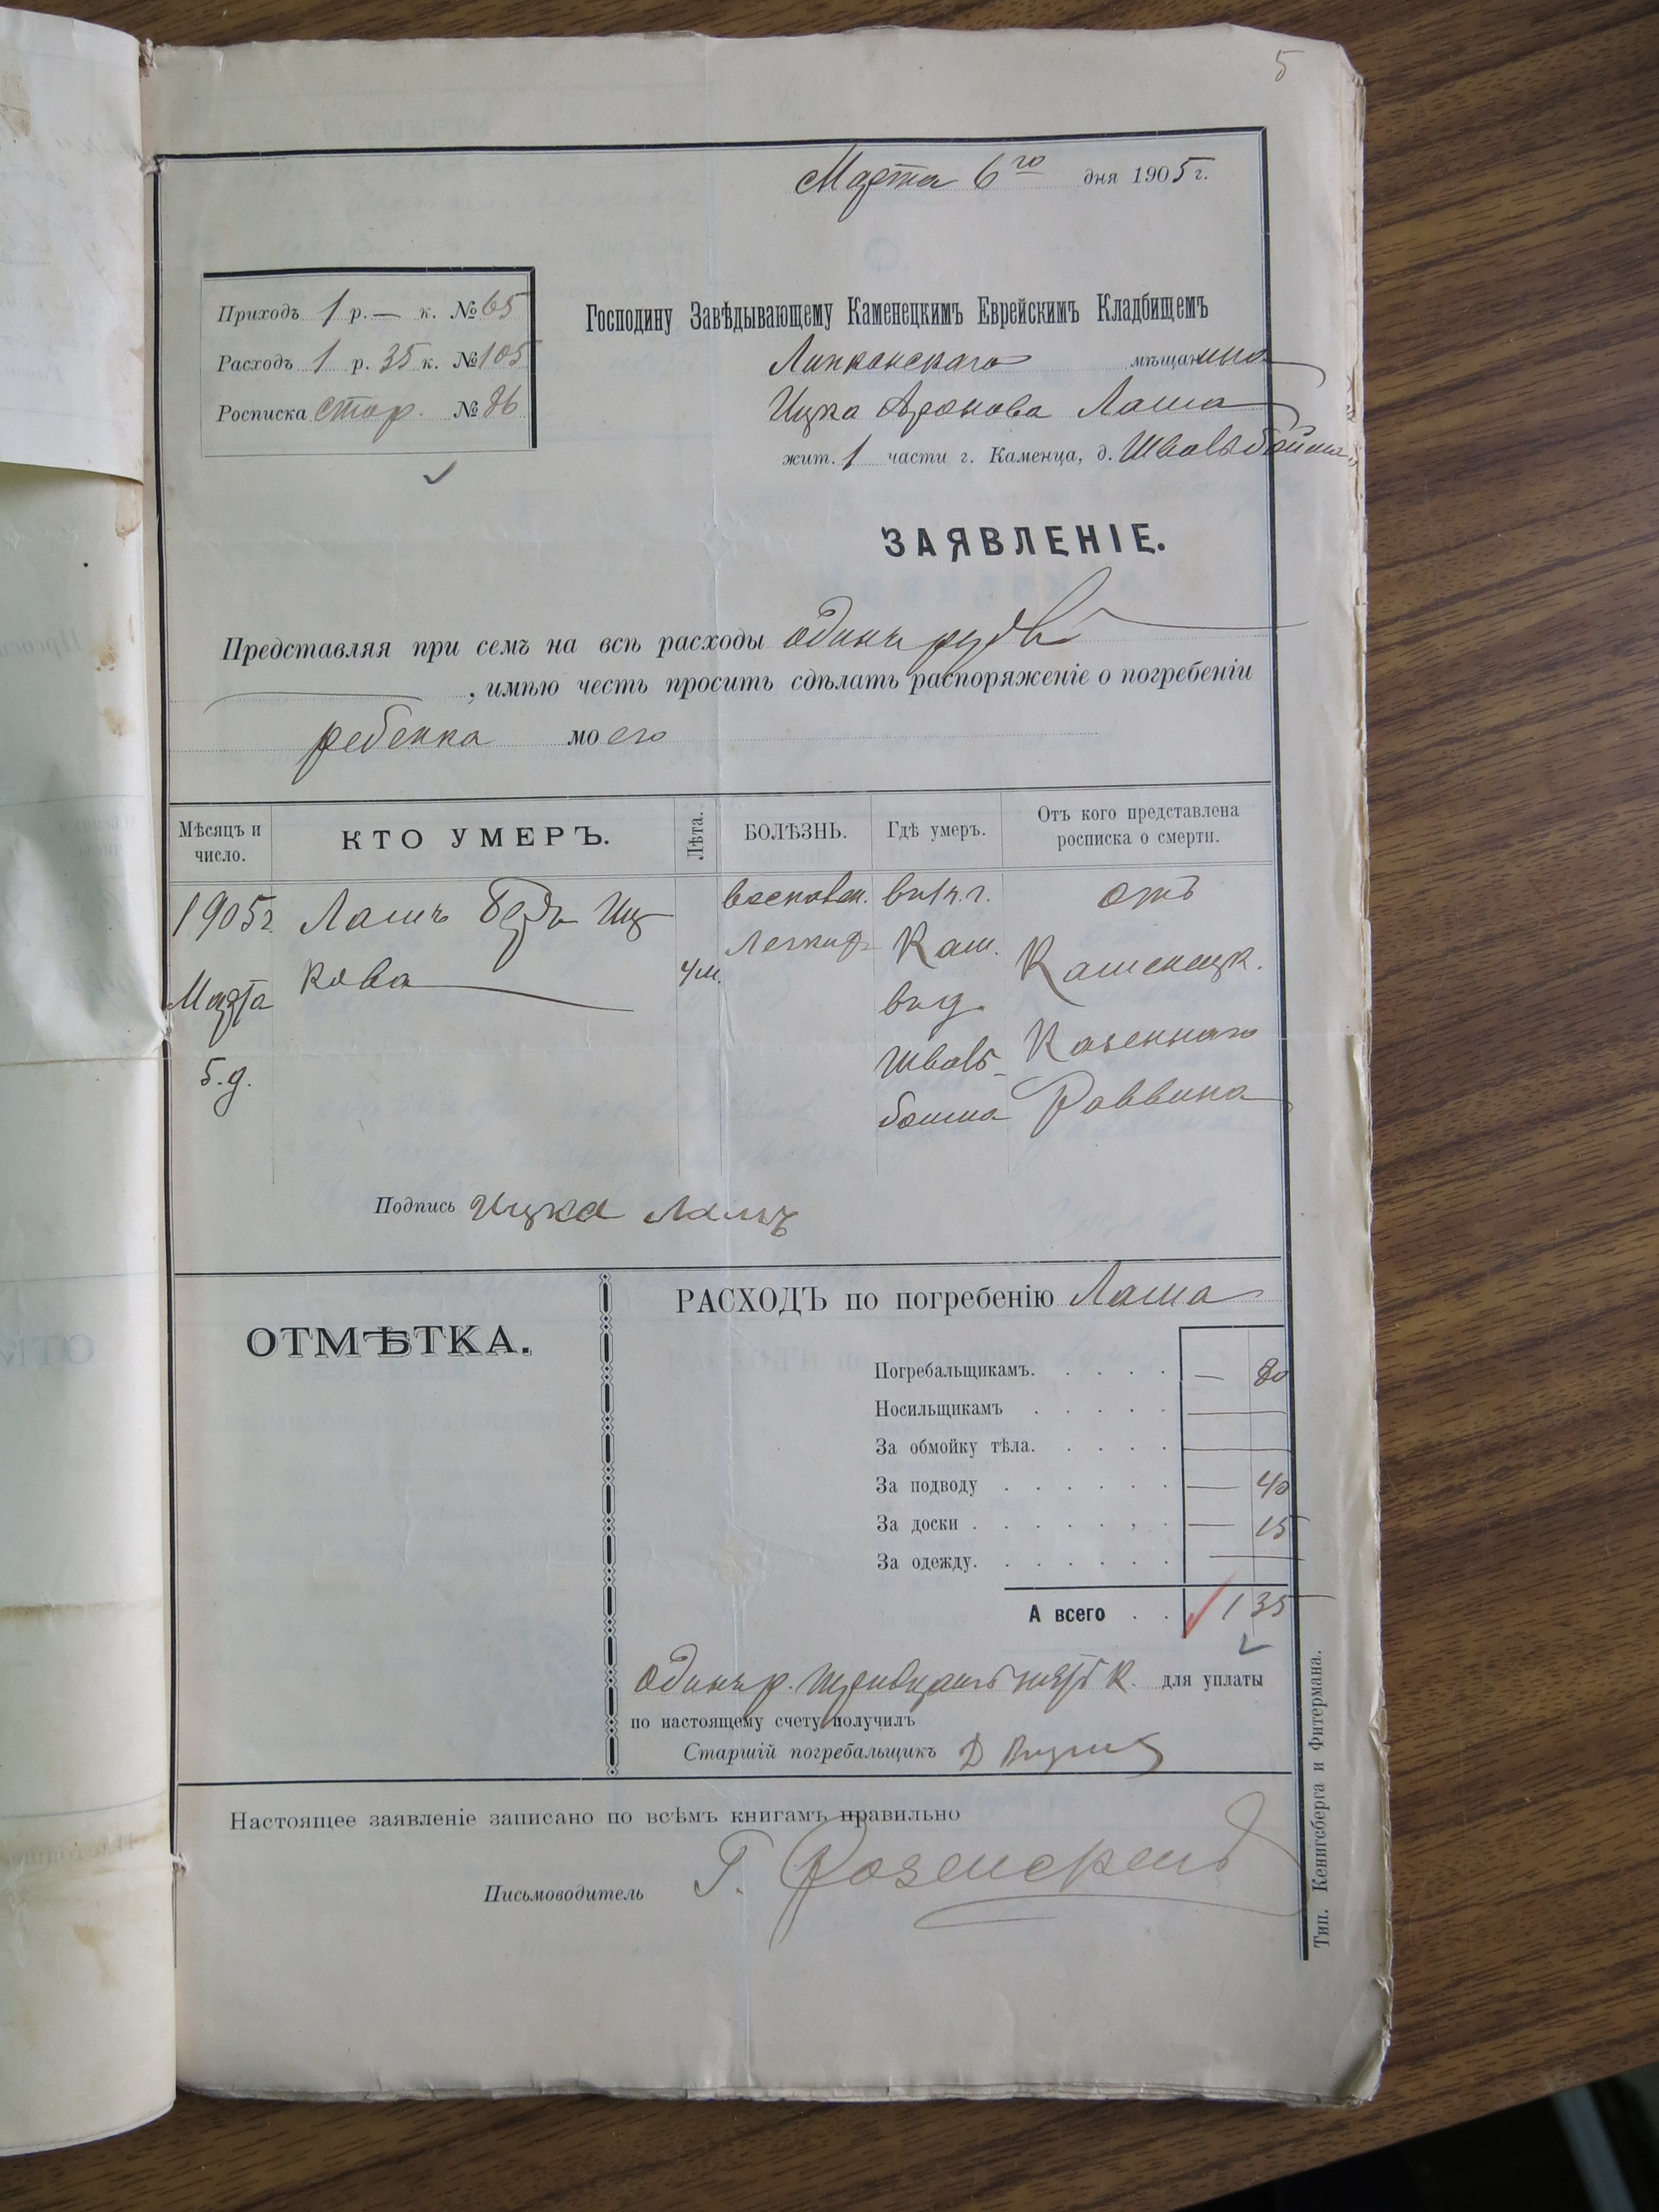 5
Марта 6го дня 1905 г.
Приходъ 1 р. — к. № 65
Расходъ 1 р. 35 к. № 105
Росписка стор. № 86
Господину Завѣдывающему Каменецкимъ Еврейскимъ Кладбищемъ
Липканскаго мѣщанина
Ицка Аронова Лаша
жит. 1 части г. Каменца, д. Швальбойма
ЗАЯВЛЕНІЕ.
Представляя при семъ на всѣ расходы одинъ рубль
, имѣю честь просить сдѣлать распоряженіе о погребеніи
ребенка моего
Мѣсяцъ и число.
КТО УМЕРЪ.
Лѣта.
БОЛѢЗНЬ.
Гдѣ умеръ.
Отъ кого представлена росписка о смерти.
1905 г. Марта 5. д.
Лашъ Ицкова
4 м.
воспален. легких
въ 1 ч. г. Кам. въ д. Швальбойма
отъ Каменецк. Казеннаго Раввина
Подпись Ицка Лашъ
ОТМѢТКА.
РАСХОДЪ по погребенію Лаша
Погребальщикамъ. — 80
Носильщикамъ —
За обмойку тѣла. —
За подводу — 40
За доски — 15
За одежду. —
А всего 1 35
одинъ р. тридцать пять к. для уплаты
по настоящему счету получилъ
Старшій погребальщикъ Д
Настоящее заявленіе записано по всѣмъ книгамъ правильно
Письмоводитель Г.
Тип. Кенигсберга и Фитермана.